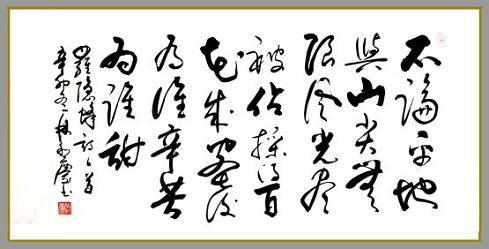 不論平地
與山尖無
限風光盡
被佔採得百
花成蜜後
為誰辛苦
為誰甜
羅隱蜂詩一首
辛卯冬